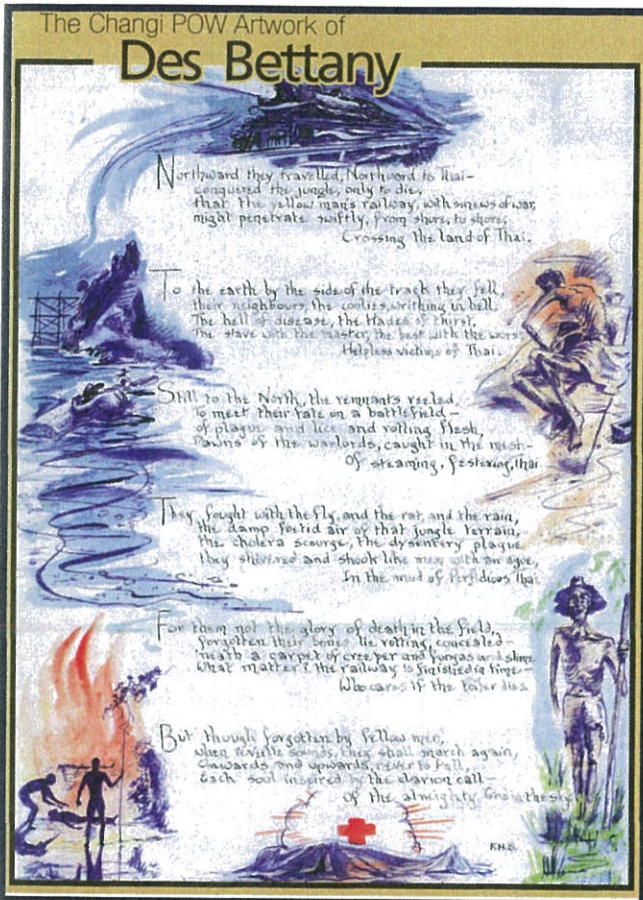 The Changi POW Artwork of
Des Bettany
Northward they travelled, Northward to Thai-
conquered the jungle, only to die,
that the yellow man's railway, with sinews of war,
might penetrate swiftly, from shore, to shore,
Crossing the land of Thai.
To the earth by the side of the track they fell,
their neighbours, the coolies, writhing in hell.
The hell of disease, the Hades of thirst,
The slave with the master, the best with the worst
Helpless victims of Thai.
Still to the North, the remnants reeled,
to meet their fate on a battlefield -
of plague and lice and rotting flesh,
Pawns of the warlords, caught in the mesh-
Of steaming, festering, Thai
They fought with the fly, and the rat, and the rain,
the damp foetid air of that jungle terrain,
the cholera scourge, the dysentery plague
they shivered and shook like men with an ague,
In the mud of Perfidious Thai
For them not the glory of death in the field,
forgotten their bones, lie rotting, concealed-
neath a carpet of creeper and fungas and slime
what matter? the railway is finished in time-
Who cares if the toiler dies
But though forgotten by fellow men,
when reveille sounds, they shall march again,
Onwards and upwards, never to fall,
Each soul inspired by the clarion call-
Of the almighty, the sky.
F.H.S.